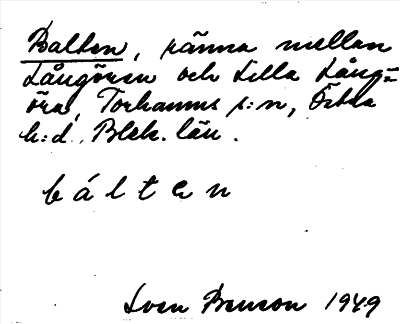 Balten, ränna mellan
Långören och Lilla Lång-
öra, Torhamns s:n, Östra
h:d, Blek. län.
b á l t e n
Sven Benson 1949